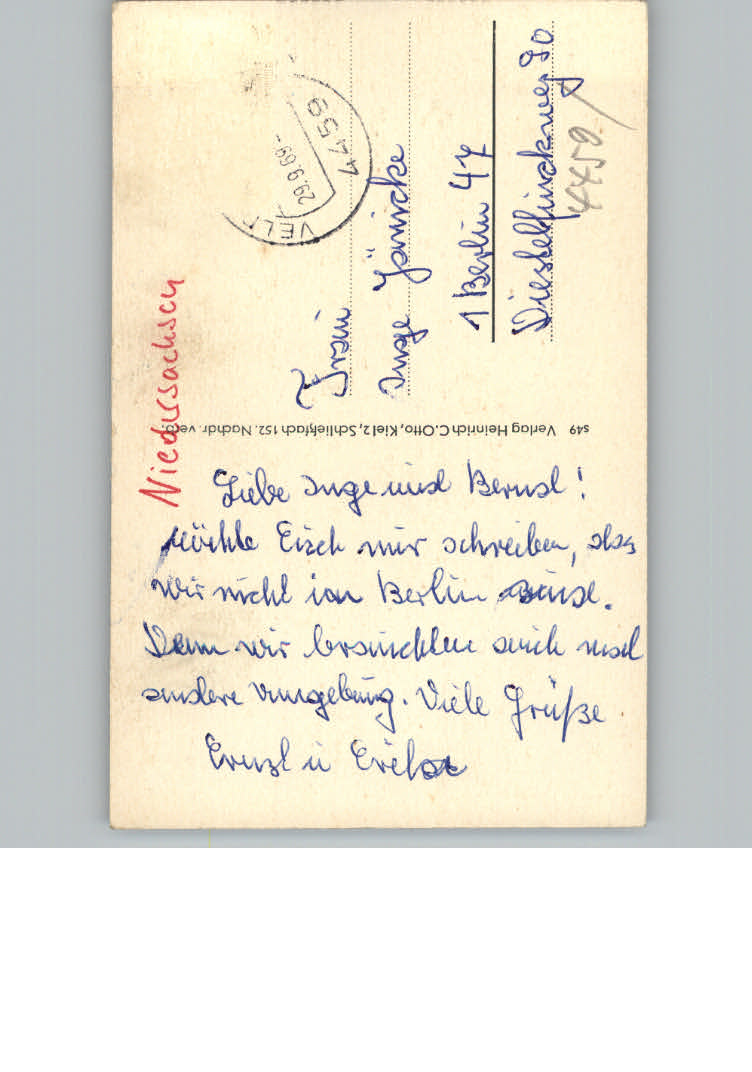 Niedersachsen
4459
29.9.69-
VELD
Frau
Inge Jänicke
1 Berlin 47
Diestelfinckweg 90
4459
s49 Verlag Heinrich C. Otto, Kiel 2, Schließfach 152. Nachdr. verb.
Liebe Inge und Bernd!
Möchte Euch nur schreiben, das
wir nicht in Berlin sind.
Denn wir brauchten auch mal
andere Umgebung. Viele Grüße
Ernst u